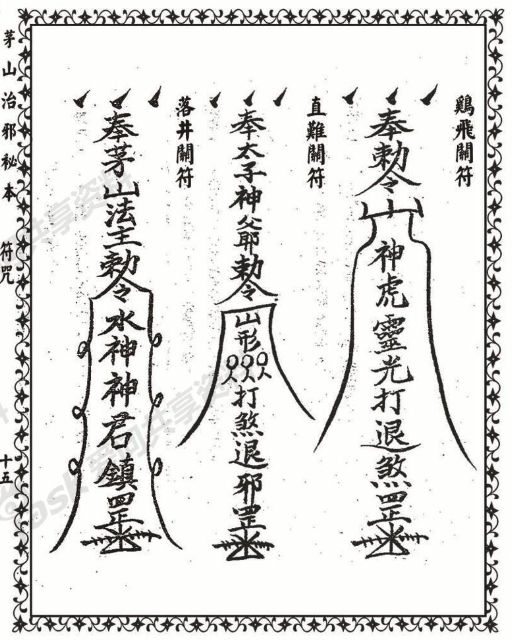 鷄飛關符
奉勅令
山
神虎靈光打退煞罡
直難關符
奉太子神爺勅令
山形
打煞退邪罡
落井關符
奉茅山法主勅令
水神神君鎮罡
茅山治邪秘本 符咒
十五